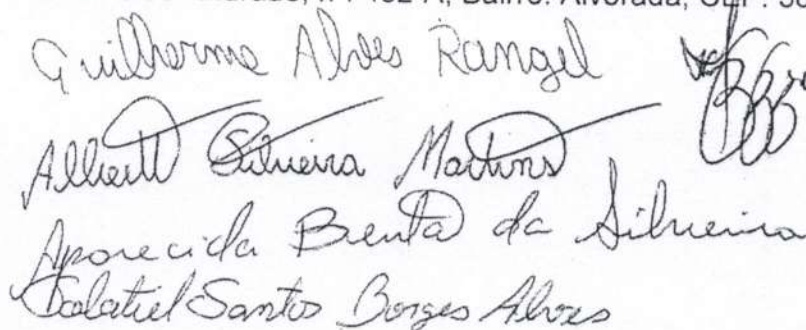 Bairro: Alvorada,
Guilherme Alves Rangel
Silveira Martins
Aparecida Benta da Silveira
Salatiel Santos Borges Alves